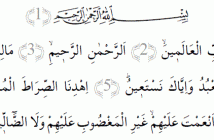 بِسْمِ اللَّهِ الرَّحْمَٰنِ الرَّحِيمِ ﴿1﴾
الْعَالَمِينَ ﴿2﴾ الرَّحْمَٰنِ الرَّحِيمِ ﴿3﴾
وَإِيَّاكَ نَسْتَعِينُ ﴿5﴾ اهْدِنَا الصِّرَاطَ
أَنْعَمْتَ عَلَيْهِمْ غَيْرِ الْمَغْضُوبِ عَلَيْهِمْ وَلَا